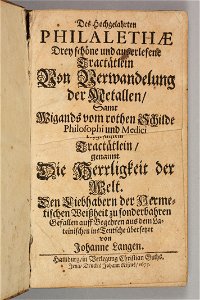 Des Hochgelahrten
PHILALETHÆ
Drey schöne und außerlesene
Tractätlein
Von Verwandelung
der Metallen/
Samt
Wigands vom rothen Schilde
Philosophi und Medici
Tractätlein/
genannt
Die Herrligkeit der
Welt.
Den Liebhabern der Herme-
tischen Weißheit zu sonderbahren
Gefallen auff Begehren aus dem La-
teinischen ins Teutsche übersetzet
von
Johanne Langen.
Hamburg/ in Verlegung Christian Guths.